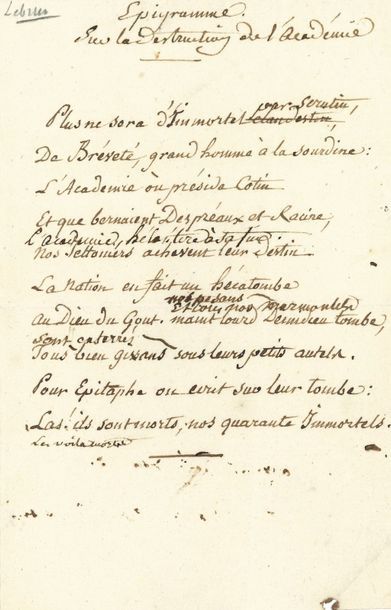 Lebrun
Epigramme.
Sur la destruction de l'Académie
par Scrutin,
Plus ne sera d'Immortel clandestin,
De Bréveté, grand homme à la sourdine:
L'Academie où préside Cotin
Et que bernaient Despréaux et Racine,
l'academie, hélas! tire à sa fin:
Nos Settoniers achevent leur Destin.
La Nation en fait un hécatombe
nos pesans
Et toi, gros Marmontel
au Dieu du Gout. maint lourd Demidieu tombe,
sont enterrés
Tous bien gisans sous leurs petits autels.
Pour Epitaphe on ecrit sur leur tombe:
Las! ils sont morts, nos quarante Immortels.
Les voila morts